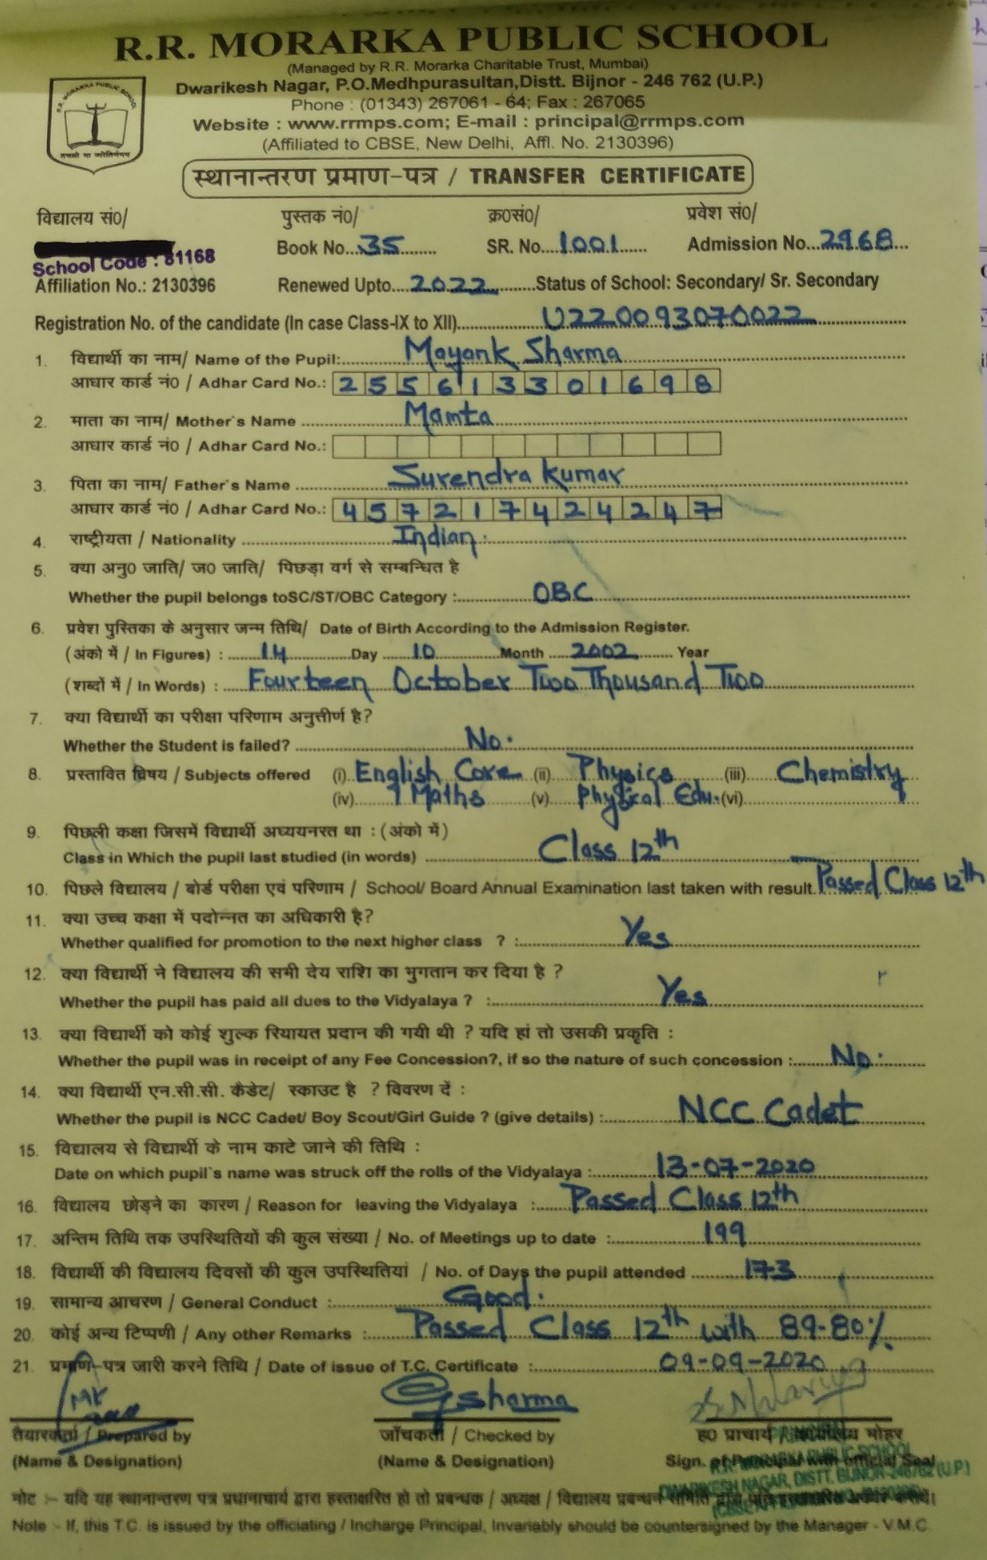 R.R. MORARKA PUBLIC SCHOOL
(Managed by R.R. Morarka Charitable Trust, Mumbai)
Dwarikesh Nagar, P.O.Medhpurasultan,Distt. Bijnor - 246 762 (U.P.)
Phone : (01343) 267061 - 64; Fax : 267065
Website : www.rrmps.com; E-mail : principal@rrmps.com
(Affiliated to CBSE, New Delhi, Affl. No. 2130396)
R.R. MORARKA PUBLIC SCHOOL
तमसो मा ज्योतिर्गमय
स्थानान्तरण प्रमाण-पत्र / TRANSFER CERTIFICATE
विद्यालय सं0/ पुस्तक नं0/ क्र0सं0/ प्रवेश सं0/
Book No. 35 SR. No. 1001 Admission No. 2968
School Code : 81168
Affiliation No.: 2130396 Renewed Upto.... 2022 Status of School: Secondary/ Sr. Secondary
Registration No. of the candidate (In case Class-IX to XII) U220093070022
1. विद्यार्थी का नाम/ Name of the Pupil: Mayank Sharma
आधार कार्ड नं0 / Adhar Card No.: 255613301698
2. माता का नाम/ Mother's Name Mamta
आधार कार्ड नं0 / Adhar Card No.:
3. पिता का नाम/ Father's Name Surendra Kumar
आधार कार्ड नं0 / Adhar Card No.: 457217424247
4. राष्ट्रीयता / Nationality Indian.
5. क्या अनु0 जाति/ ज0 जाति/ पिछड़ा वर्ग से सम्बन्धित है
Whether the pupil belongs toSC/ST/OBC Category : OBC
6. प्रवेश पुस्तिका के अनुसार जन्म तिथि/ Date of Birth According to the Admission Register.
(अंको में / In Figures) : 14 Day 10 Month 2002 Year
(शब्दों में / In Words) : Fourteen October Two Thousand Two
7. क्या विद्यार्थी का परीक्षा परिणाम अनुत्तीर्ण है?
Whether the Student is failed? No.
8. प्रस्तावित विषय / Subjects offered (i) English Core (ii) Physics (iii) Chemistry
(iv) Maths (v) Physical Edu. (vi)
9. पिछली कक्षा जिसमें विद्यार्थी अध्ययनरत था : (अंको में)
Class in Which the pupil last studied (in words) Class 12th
10. पिछले विद्यालय / बोर्ड परीक्षा एवं परिणाम / School/ Board Annual Examination last taken with result. Passed Class 12th
11. क्या उच्च कक्षा में पदोन्नत का अधिकारी है?
Whether qualified for promotion to the next higher class ? : Yes
12. क्या विद्यार्थी ने विद्यालय की सभी देय राशि का भुगतान कर दिया है ?
Whether the pupil has paid all dues to the Vidyalaya ? : Yes
13. क्या विद्यार्थी को कोई शुल्क रियायत प्रदान की गयी थी ? यदि हां तो उसकी प्रकृति :
Whether the pupil was in receipt of any Fee Concession?, if so the nature of such concession : No.
14. क्या विद्यार्थी एन.सी.सी. कैडेट/ स्काउट है ? विवरण दें :
Whether the pupil is NCC Cadet/ Boy Scout/Girl Guide ? (give details) : NCC Cadet
15. विद्यालय से विद्यार्थी के नाम काटे जाने की तिथि :
Date on which pupil's name was struck off the rolls of the Vidyalaya : 13-07-2020
16. विद्यालय छोड़ने का कारण / Reason for leaving the Vidyalaya : Passed Class 12th
17. अन्तिम तिथि तक उपस्थितियों की कुल संख्या / No. of Meetings up to date : 199
18. विद्यार्थी की विद्यालय दिवसों की कुल उपस्थितियां / No. of Days the pupil attended 173
19. सामान्य आचरण / General Conduct : Good.
20. कोई अन्य टिप्पणी / Any other Remarks : Passed Class 12th with 89.80%
21. प्रमाण-पत्र जारी करने तिथि / Date of issue of T.C. Certificate : 09-09-2020
Gsharma
तैयारकर्ता / Prepared by जाँचकर्ता / Checked by ह0 प्राचार्य मोहर
(Name & Designation) (Name & Designation) Sign. of Principal with official Seal
R.R. MORARKA PUBLIC SCHOOL
DWARIKESH NAGAR, DISTT. BIJNOR-246762 (U.P.)
नोट :- यदि यह स्थानान्तरण पत्र प्रधानाचार्य द्वारा हस्ताक्षरित हो तो प्रबन्धक / अध्यक्ष / विद्यालय प्रबन्धन समिति द्वारा
Note :- If, this T.C. is issued by the officiating / Incharge Principal, Invariably should be countersigned by the Manager - V.M.C.